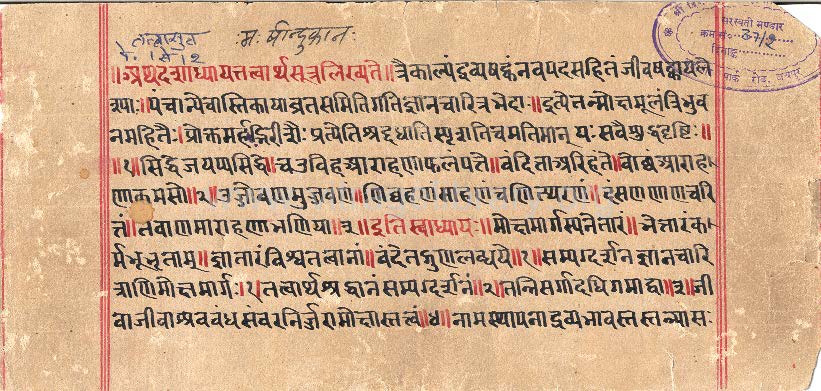 तत्वासुत्र
॥अथदशाध्यायतत्वार्थसूत्रलिख्यते॥त्रैकाल्यंद्रव्यषट्कंनवपदसहितंजीवषट्कायले
श्याः॥पंचान्येचास्तिकायाव्रतसमितिगतिज्ञानचारित्रभेदाः॥इत्येतन्मोक्षमूलंत्रिभुव
नमहितैः॥प्रोक्तमर्हद्भिरीशैः॥प्रत्येतिश्रद्दधातिस्पृशतिचमतिमान्॥यःसवैशुद्धदृष्टिः॥
॥१॥सिद्धेजयप्पसिद्धे॥चउविहआराहणाफलंपत्ते॥वंदित्ताअरिहंते॥वोच्छंआराह
णाकमसो॥२॥उज्जोवणमुज्जवणं॥णिव्वहणंसाहणंचणित्थरणं॥दंसणणाणचरि
त्तं॥तवाणमाराहणाभणिया॥३॥इतिस्वाध्यायः॥मोक्षमार्गस्यनेतारं॥भेत्तारंक
र्मभूभृताम्॥ज्ञातारंविश्वतत्वानां॥वंदेतद्गुणलब्धये॥१॥सम्यग्दर्शनज्ञानचारि
त्राणिमोक्षमार्गः॥१॥तत्वार्थश्रद्धानंसम्यग्दर्शनं॥२॥तन्निसर्गादधिगमाद्वा॥३॥जी
वाजीवाश्रवबंधसंवरनिर्ज्जरामोक्षास्तत्वं॥४॥नामस्थापनाद्रव्यभावस्तस्तन्न्यासः
सरस्वती भण्डार
क्रम सं० ३७/२
दिनाङ्क
पार्क रोड, जयपुर